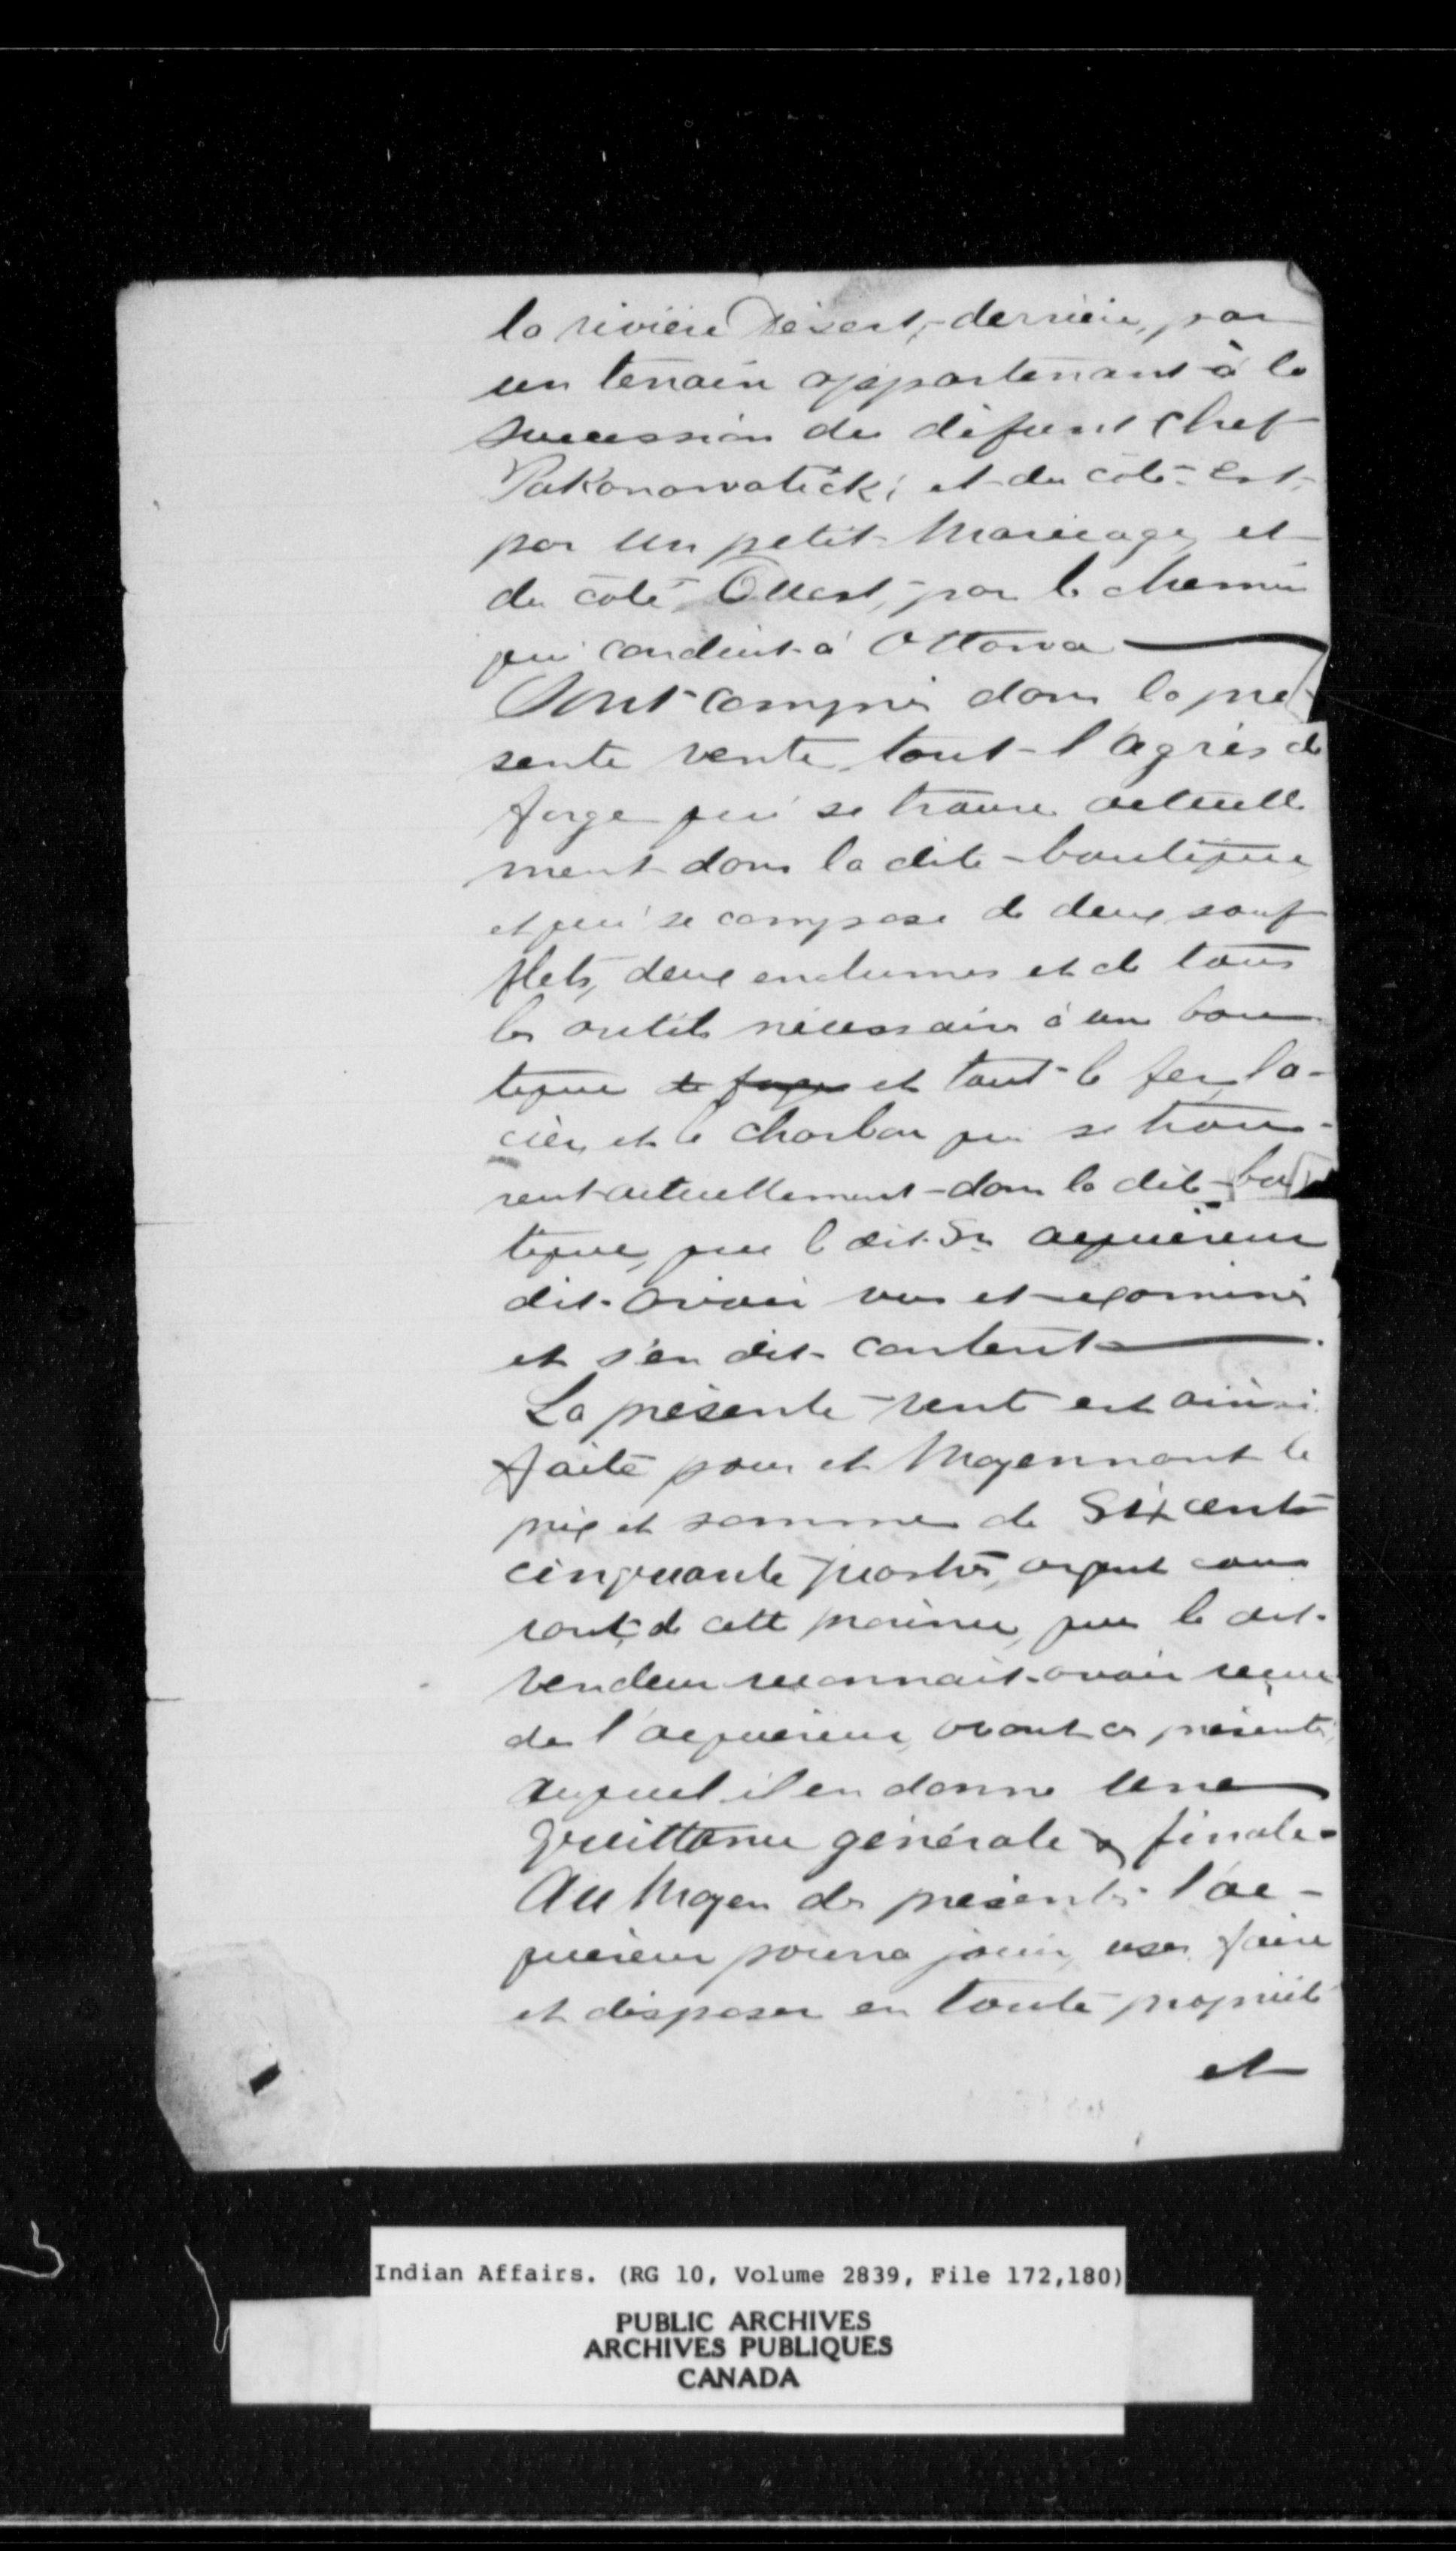 la rivière Désert, derrière, par
un terrain appartenant à la
succession du défunt chef
Pakonowatick; et du côté Est,
par un petit Marécage, et
du côté Ouest, par le chemin
qui conduit à Ottawa
Sont compris dans la pré-
sente vente, tout l'agrès de
forge qui se trouve actuelle
ment dans la dite boutique
et qui se compose de deux souf
flets, deux enclumes et de tous
les outils nécessaires à une bou
tique de forge et tout le fer, l'a-
cier, et le charbon qui se trou-
vent actuellement dans la dite bou
tique, que le dit Sr acquéreur
dit avoir vus et examinés
et s'en dit content
La présente vente est ainsi
faite pour et Moyennant le
prix et somme de Six cent
cinquante piastres, argent cou
rant, de cette province, que le dit
vendeur reconnait avoir reçue
de l'acquéreur, avant ces présentes,
duquel il en donne une
Quittance générale & finale.
Au Moyen des présentes l'ac-
quéreur pourra jouir, user, faire
et disposer en toute propriété
et
Indian Affairs. (RG 10, Volume 2839, File 172,180)
PUBLIC ARCHIVES
ARCHIVES PUBLIQUES
CANADA